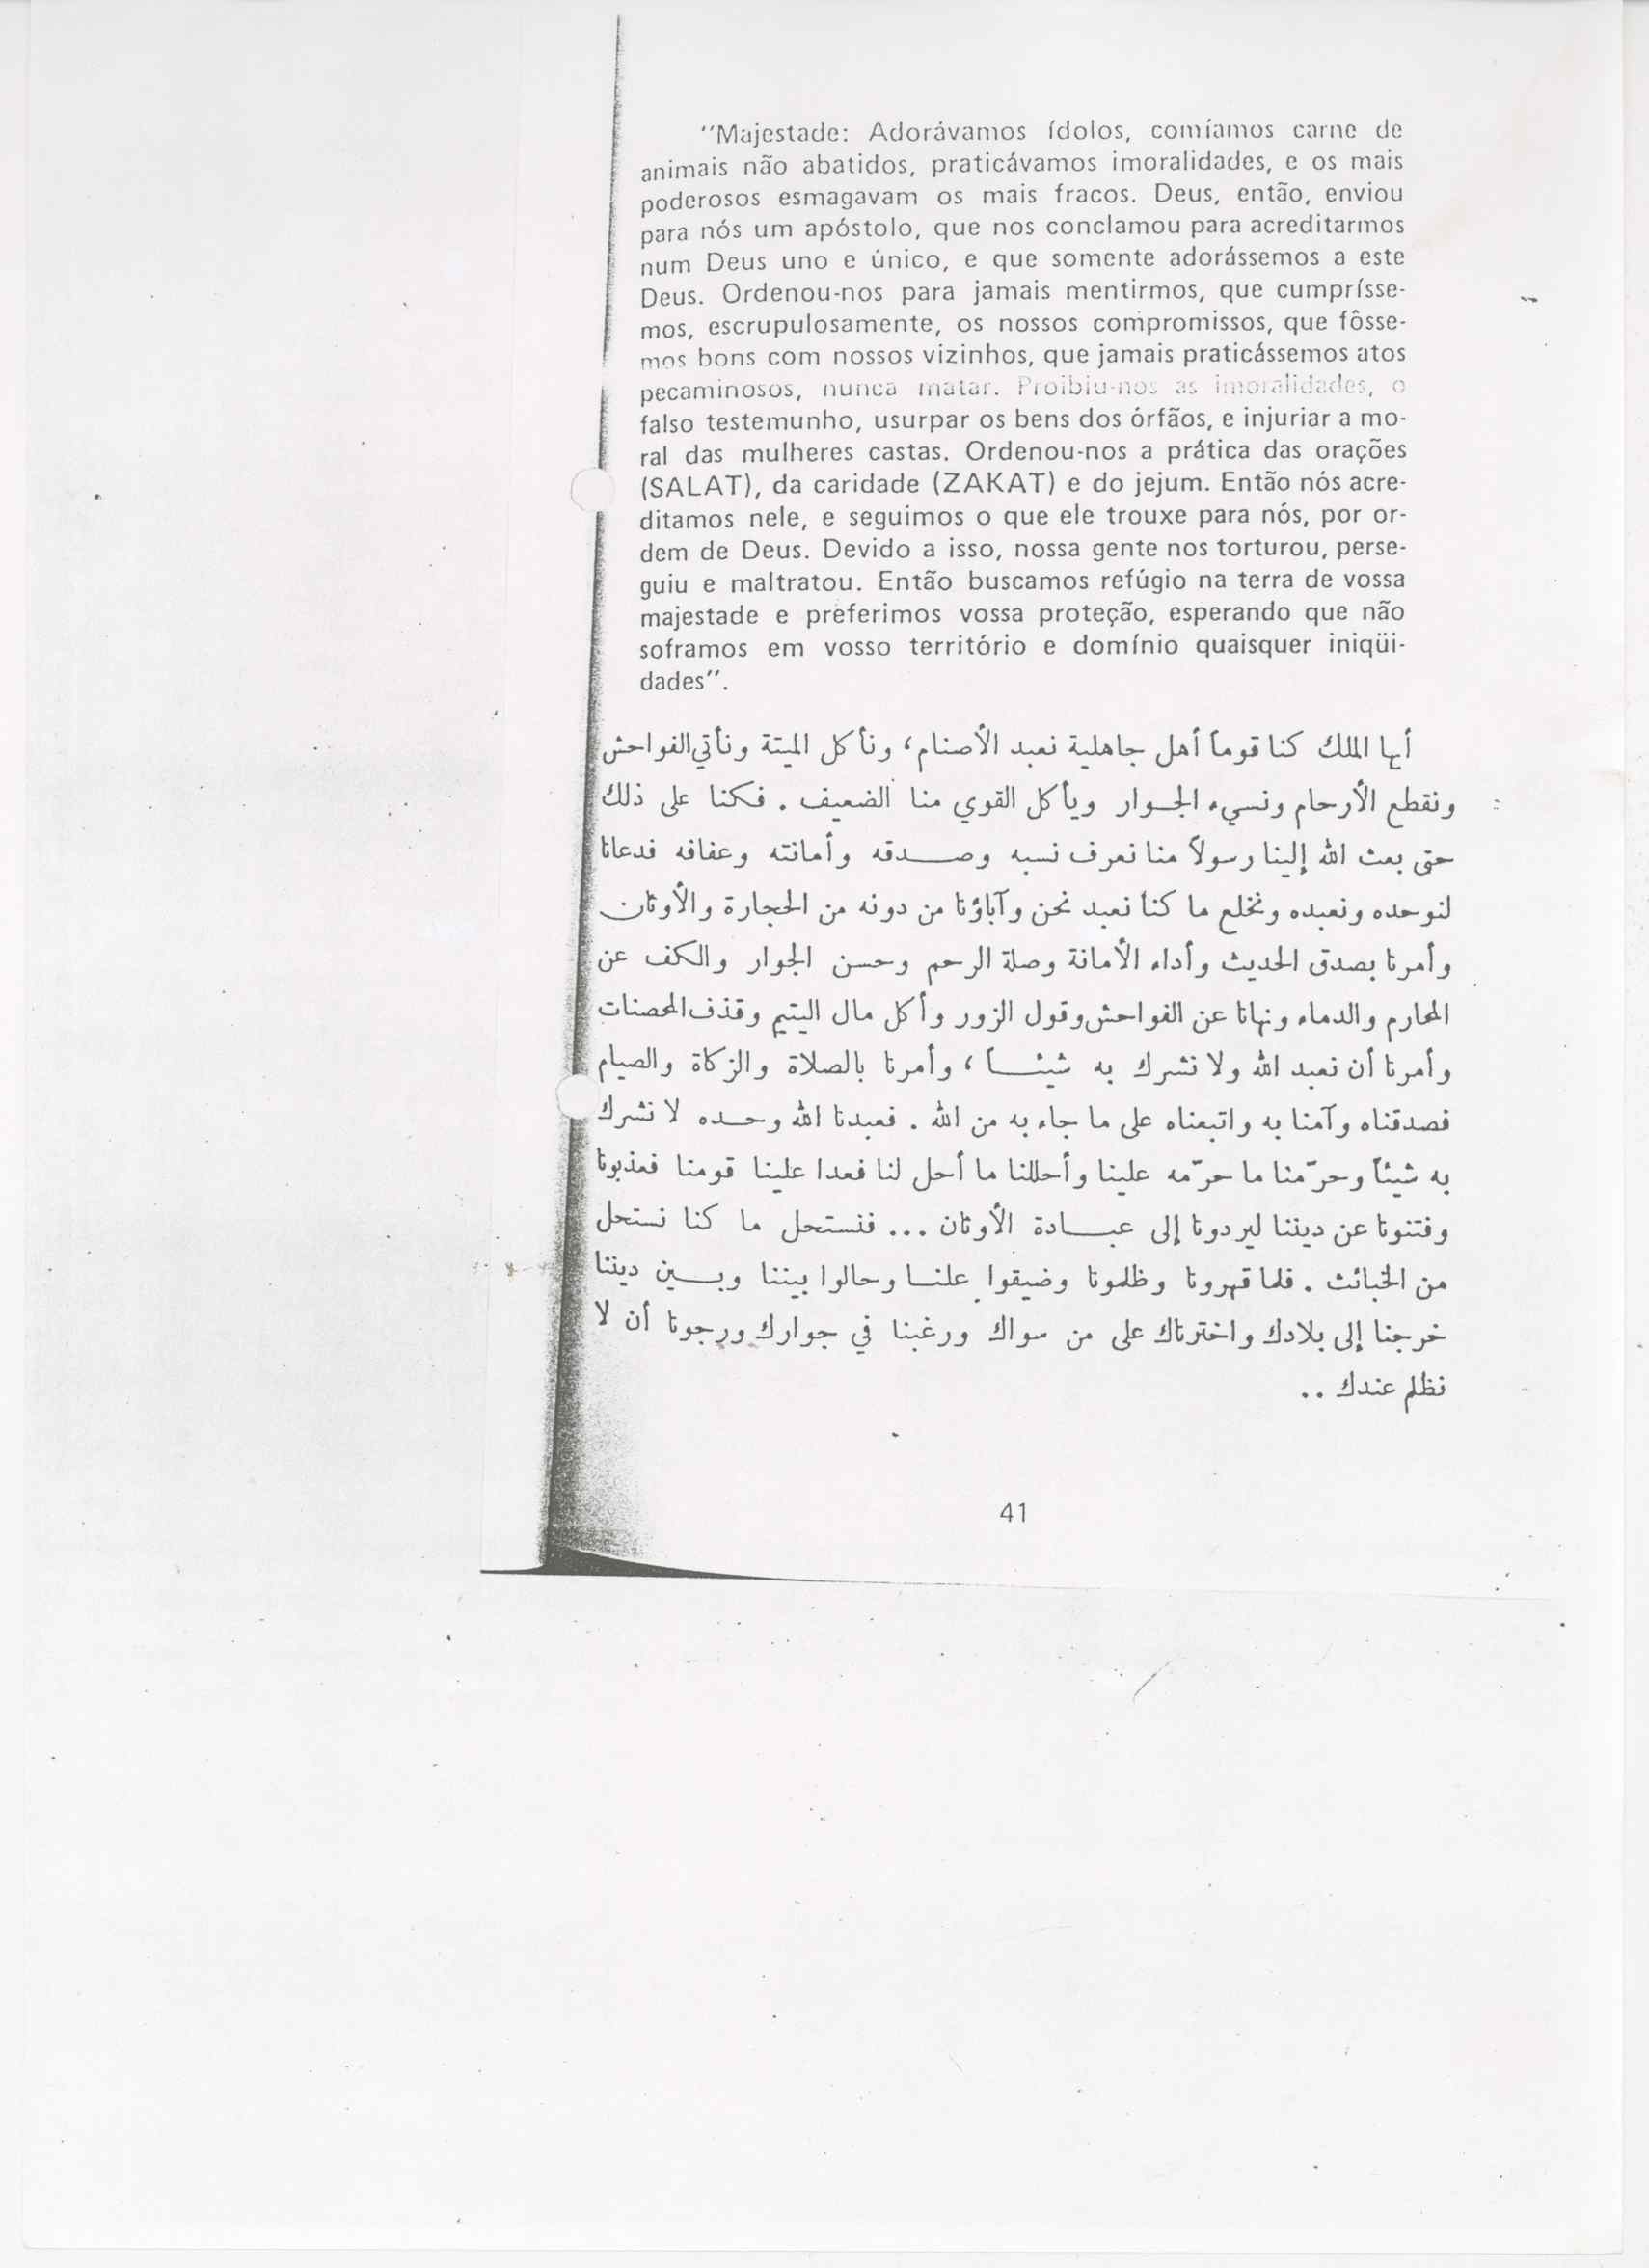 "Majestade: Adorávamos ídolos, comíamos carne de
animais não abatidos, praticávamos imoralidades, e os mais
poderosos esmagavam os mais fracos. Deus, então, enviou
para nós um apóstolo, que nos conclamou para acreditarmos
num Deus uno e único, e que somente adorássemos a este
Deus. Ordenou-nos para jamais mentirmos, que cumprísse-
mos, escrupulosamente, os nossos compromissos, que fôsse-
mos bons com nossos vizinhos, que jamais praticássemos atos
pecaminosos, nunca matar. Proibiu-nos as imoralidades, o
falso testemunho, usurpar os bens dos órfãos, e injuriar a mo-
ral das mulheres castas. Ordenou-nos a prática das orações
(SALAT), da caridade (ZAKAT) e do jejum. Então nós acre-
ditamos nele, e seguimos o que ele trouxe para nós, por or-
dem de Deus. Devido a isso, nossa gente nos torturou, perse-
guiu e maltratou. Então buscamos refúgio na terra de vossa
majestade e preferimos vossa proteção, esperando que não
soframos em vosso território e domínio quaisquer iniqüi-
dades".
أيها الملك كنا قوماً أهل جاهلية نعبد الأصنام، ونأكل الميتة ونأتي الفواحش
ونقطع الأرحام ونسيء الجوار ويأكل القوي منا الضعيف . فكنا على ذلك
حتى بعث الله إلينا رسولاً منا نعرف نسبه وصدقه وأمانته وعفافه فدعانا
لنوحده ونعبده ونخلع ما كنا نعبد نحن وآباؤنا من دونه من الحجارة والأوثان
وأمرنا بصدق الحديث وأداء الأمانة وصلة الرحم وحسن الجوار والكف عن
المحارم والدماء ونهانا عن الفواحش وقول الزور وأكل مال اليتيم وقذف المحصنات
وأمرنا أن نعبد الله ولا نشرك به شيئاً ، وأمرنا بالصلاة والزكاة والصيام
فصدقناه وآمنا به واتبعناه على ما جاء به من الله . فعبدنا الله وحده لا نشرك
به شيئاً وحرّمنا ما حرّمه علينا وأحللنا ما أحل لنا فعدا علينا قومنا فعذبونا
وفتنونا عن ديننا ليردونا إلى عبادة الأوثان ... فنستحل ما كنا نستحل
من الخبائث . فلما قهرونا وظلمونا وضيقوا علنا وحالوا بيننا وبين ديننا
خرجنا إلى بلادك واخترناك على من سواك ورغبنا في جوارك ورجونا أن لا
نظلم عندك ..
41